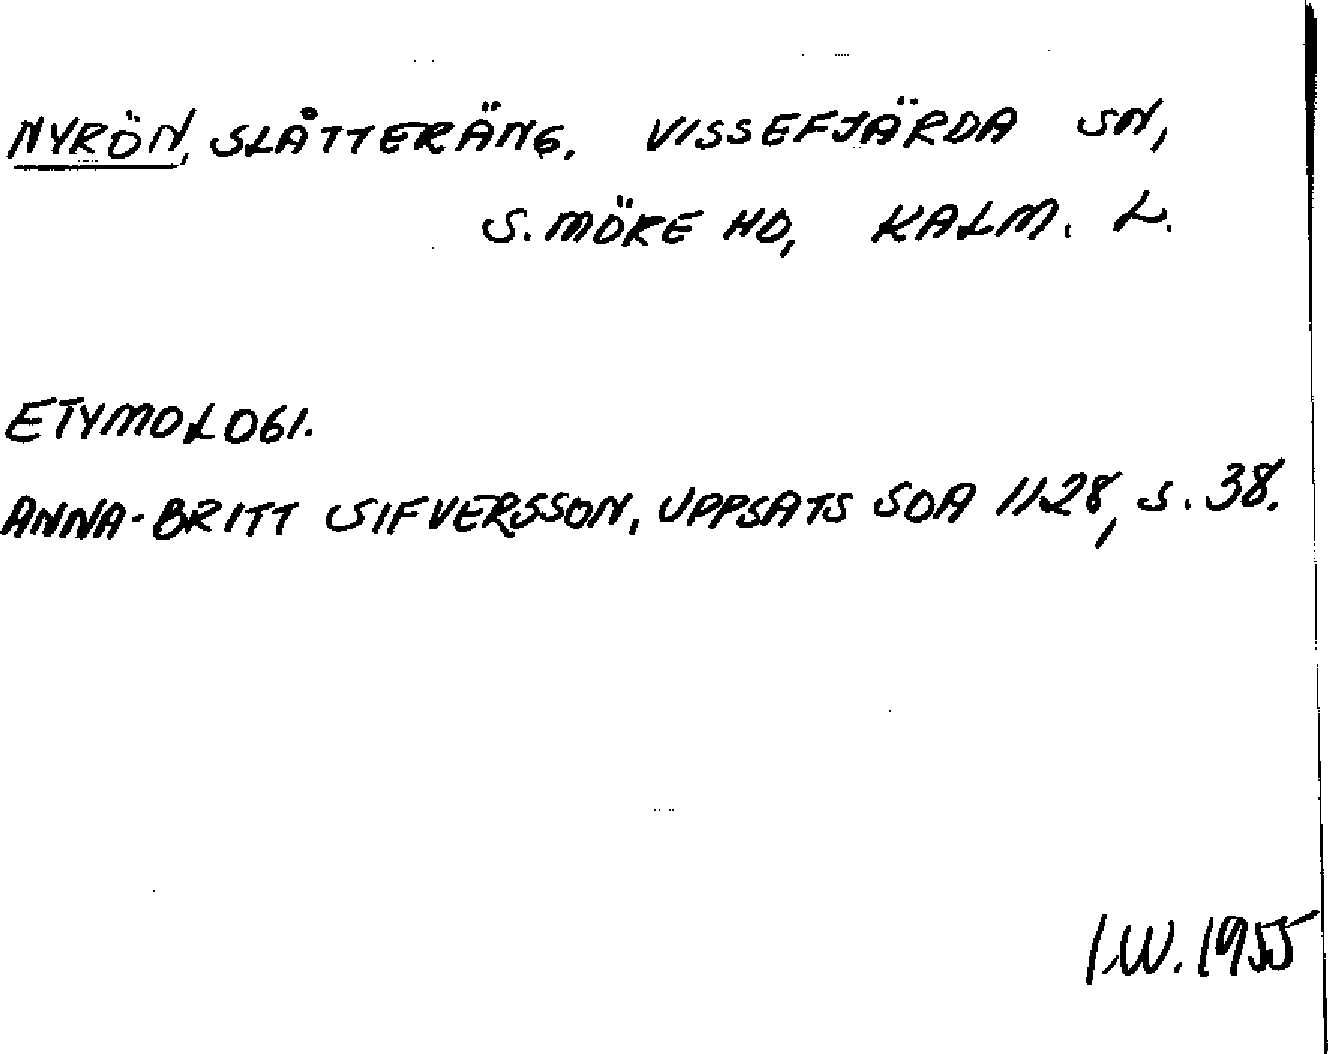 NYRÖN, SLÅTTERÄNG. VISSEFJÄRDA SN,
S. MÖRE HD, KALM. L.
ETYMOLOGI.
ANNA-BRITT SIFVERSSON, UPPSATS SOA 1128, S. 38.
I.W. 1955